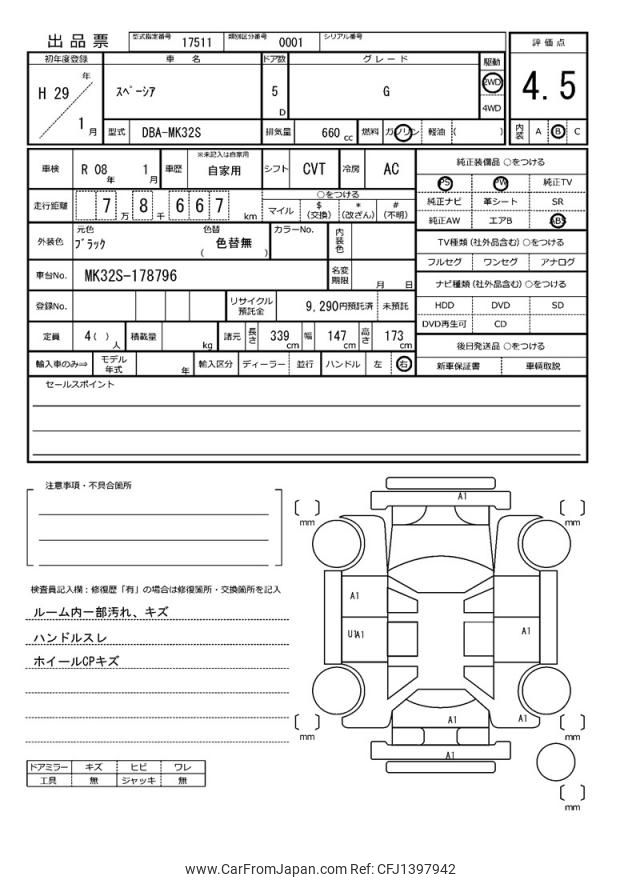 出品票
型式指定番号 17511 類別区分番号 0001 シリアル番号
評価点
4.5
内装 A B C
初年度登録 車名 ドア数 グレード 駆動
H 29 年 1 月
スペーシア 5 D G 2WD 4WD
型式 DBA-MK32S 排気量 660 cc 燃料 ガソリン 軽油 ( )
車検 R 08 年 1 月 車歴 ※未記入は自家用 自家用 シフト CVT 冷房 AC
走行距離 7 万 8 千 6 6 7 km
○をつける
マイル $ (交換) * (改ざん) # (不明)
外装色 元色 ブラック 色替 ( 色替無 ) カラーNo. 内装色
車台No. MK32S-178796 名変期限 月 日
登録No. リサイクル預託金 9,290円預託済 未預託
定員 4 ( ) 人 積載量 kg 諸元 長さ 339 cm 幅 147 cm 高さ 173 cm
輸入車のみ⇒ モデル年式 年 輸入区分 ディーラー 並行 ハンドル 左 右
純正装備品 ○をつける
PS PW 純正TV
純正ナビ 革シート SR
純正AW エアB ABS
TV種類 (社外品含む) ○をつける
フルセグ ワンセグ アナログ
ナビ種類 (社外品含む) ○をつける
HDD DVD SD
DVD再生可 CD
後日発送品 ○をつける
新車保証書 車輌取説
セールスポイント
注意事項・不具合箇所
検査員記入欄：修復歴「有」の場合は修復箇所・交換箇所を記入
ルーム内一部汚れ、キズ
ハンドルスレ
ホイールCPキズ
ドアミラー キズ ヒビ ワレ
工具 無 ジャッキ 無
A1
mm
mm
A1
U1A1
A1
A1
A1
mm
mm
A1
mm
www.CarFromJapan.com Ref: CFJ1397942